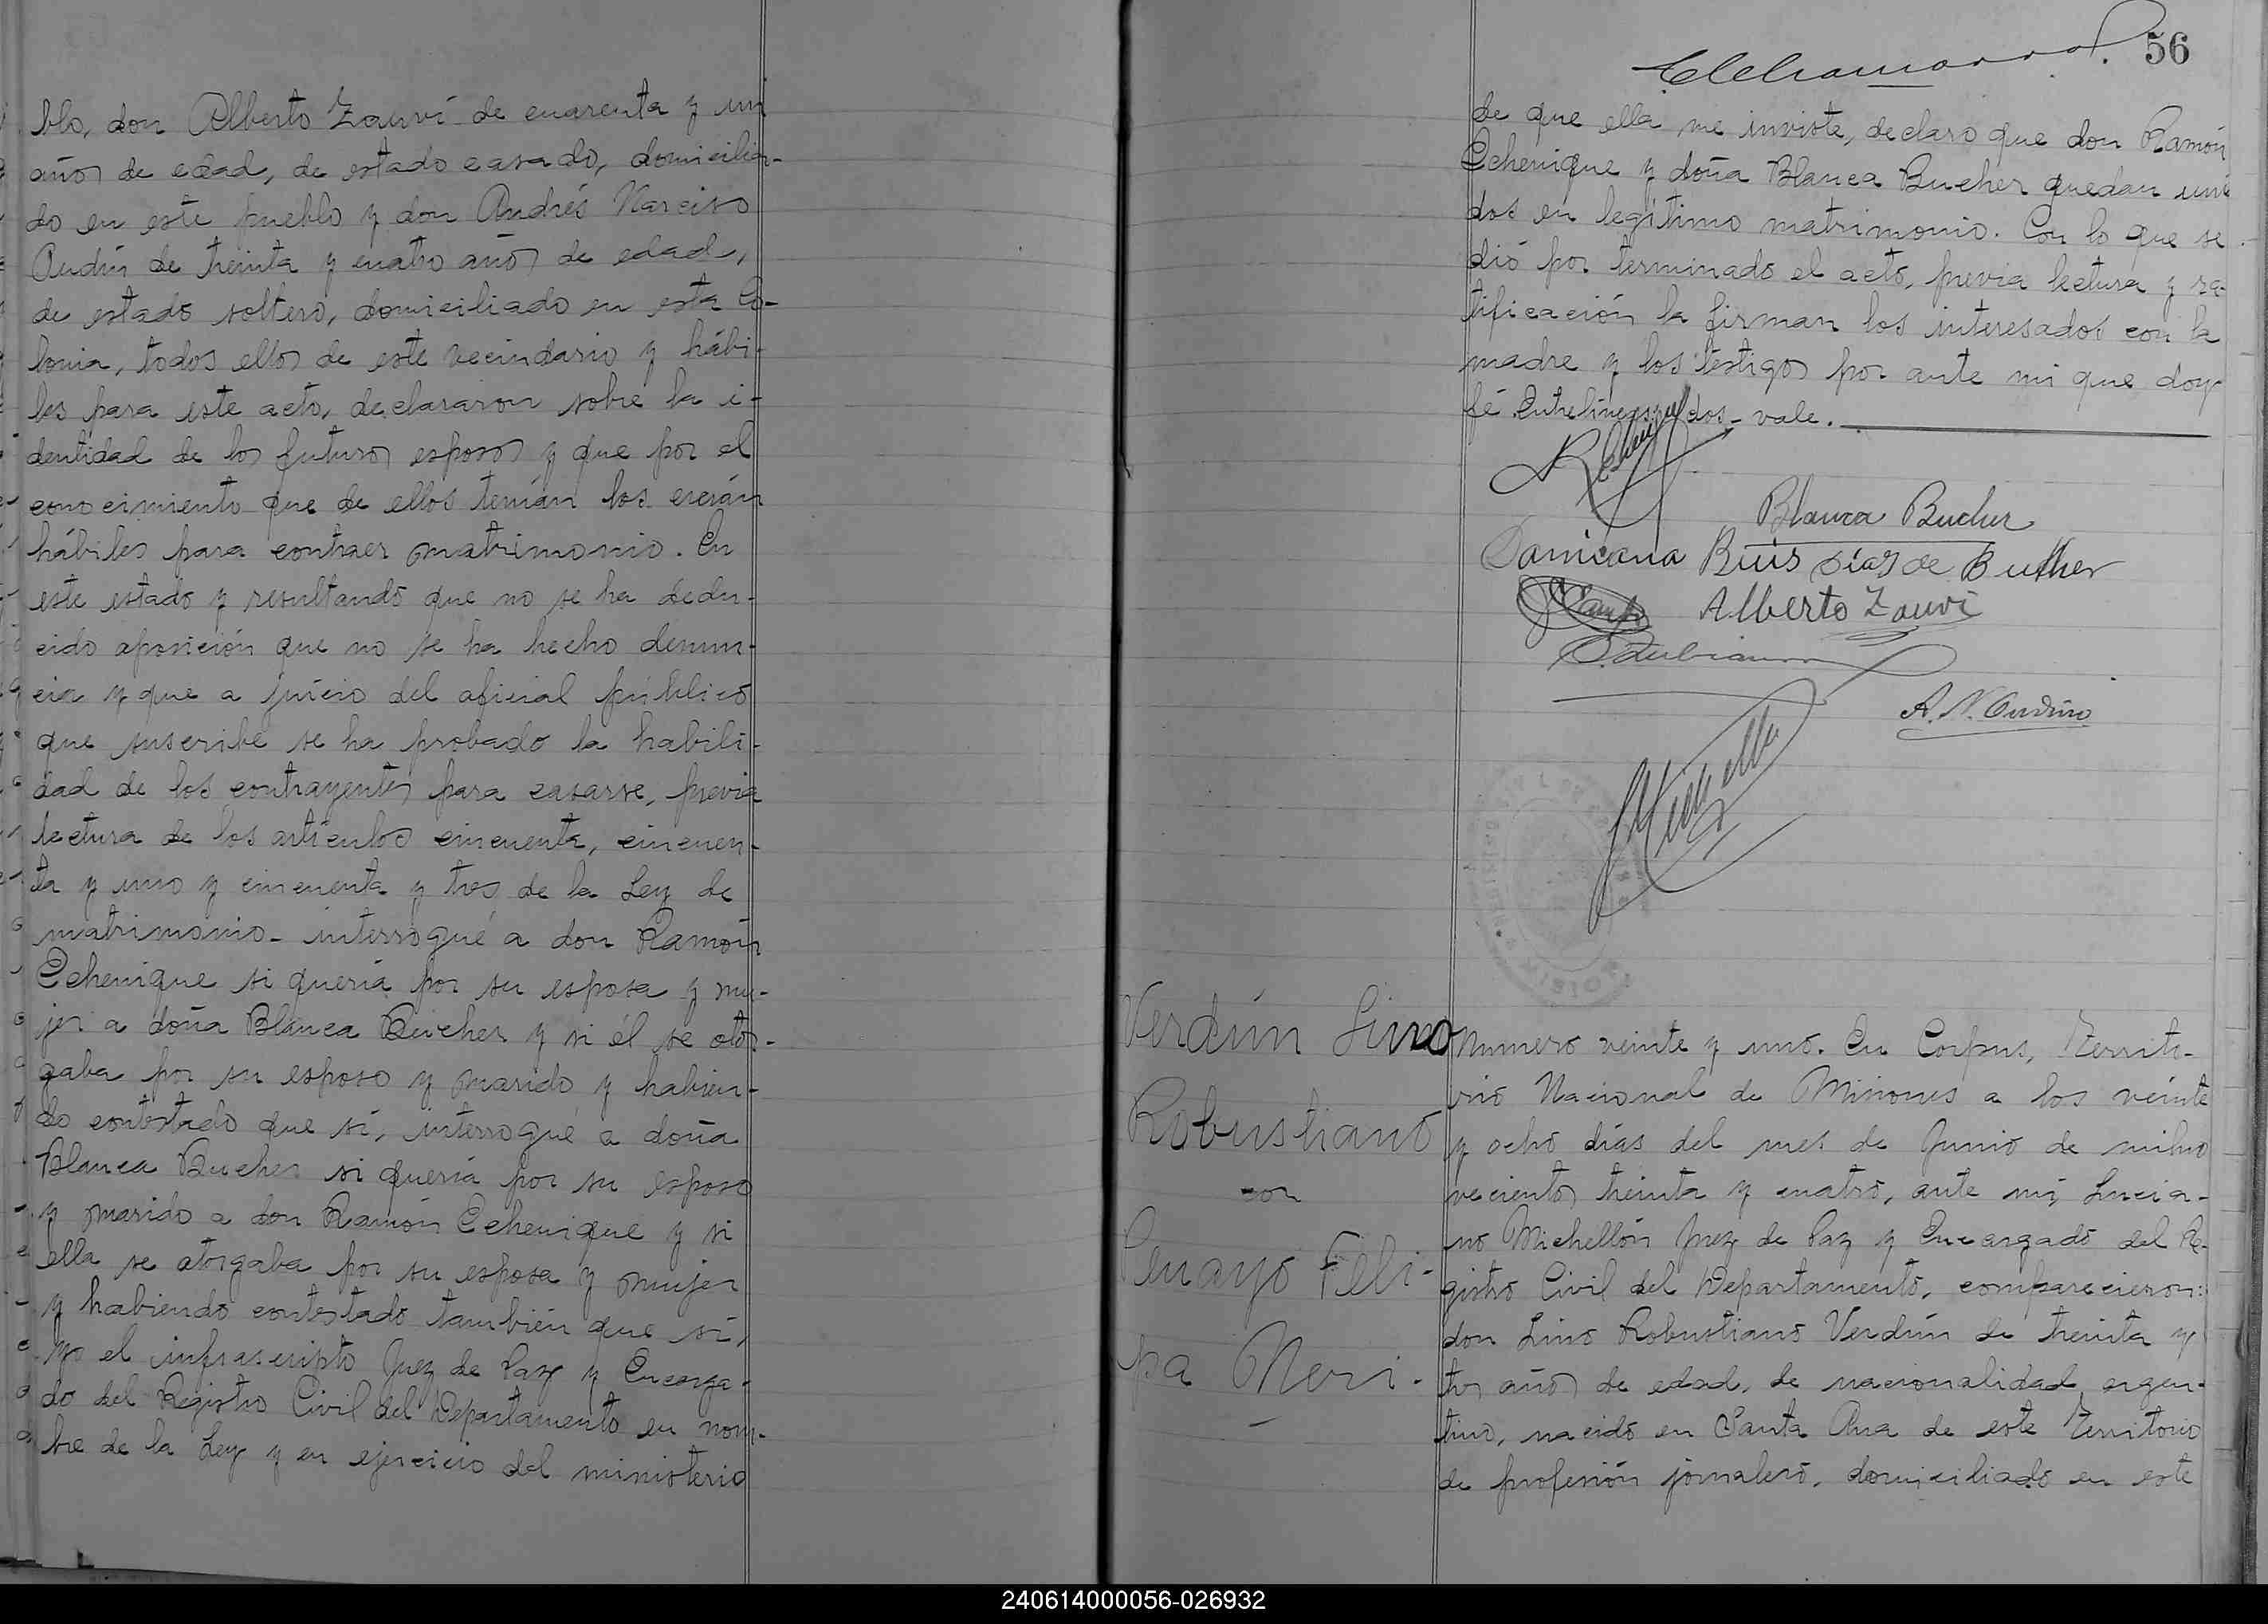 blo, don Alberto Zauvi de cuarenta y un
años de edad, de estado casado, domicilia-
do en este pueblo y don Andrés Narciso
Audin de treinta y cuatro años de edad,
de estado soltero, domiciliado en esta Co-
lonia, todos ellos de este vecindario y hábi-
les para este acto, declararon sobre la i-
dentidad de los futuros esposos y que por el
conocimiento que de ellos tenían los creían
hábiles para contraer matrimonio. En
este estado y resultando que no se ha dedu-
cido oposición que no se ha hecho denun-
cia y que a juicio del oficial público
que suscribe se ha probado la habili-
dad de los contrayentes para casarse, previa
lectura de los artículos cincuenta, cincuen-
ta y uno y cincuenta y tres de la Ley de
matrimonio - interrogué a don Ramón
Echenique si quería por su esposa y mu-
jer a doña Blanca Bucher y si él se otor-
gaba por su esposo y marido y habien-
do contestado que sí, interrogué a doña
Blanca Bucher si quería por su esposo
y marido a don Ramón Echenique y si
ella se otorgaba por su esposa y mujer
y habiendo contestado también que sí,
yo el infrascripto Juez de Paz y Encarga-
do del Registro Civil del Departamento en nom-
bre de la Ley y en ejercicio del ministerio
56
de que ella me inviste, declaro que don Ramón
Echenique y doña Blanca Bucher quedan uni
dos en legítimo matrimonio. Con lo que se
dió por terminado el acto, previa lectura y ra-
tificación la firman los interesados con la
madre y los testigos por ante mi que doy
fé. Entrelineas dos - vale.
Blanca Bucher
Damiana Ruis Dias de Buther
Alberto Zauvi
A. N. Audino
Verdún Lino
Robustiano
con
Penayo Feli-
pa Neri.-
Numero veinte y uno. En Corpus, Territo-
rio Nacional de Misiones a los veinte
y ocho días del mes de Junio de mil no
vecientos treinta y cuatro, ante mi, Lucia-
no Michellón Juez de Paz y Encargado del Re-
gistro Civil del Departamento, comparecieron:
don Lino Robustiano Verdún de treinta y
tres años de edad, de nacionalidad argen-
tino, nacido en Santa Ana de este Territorio
de profesión jornalero, domiciliado en este
240614000056-026932